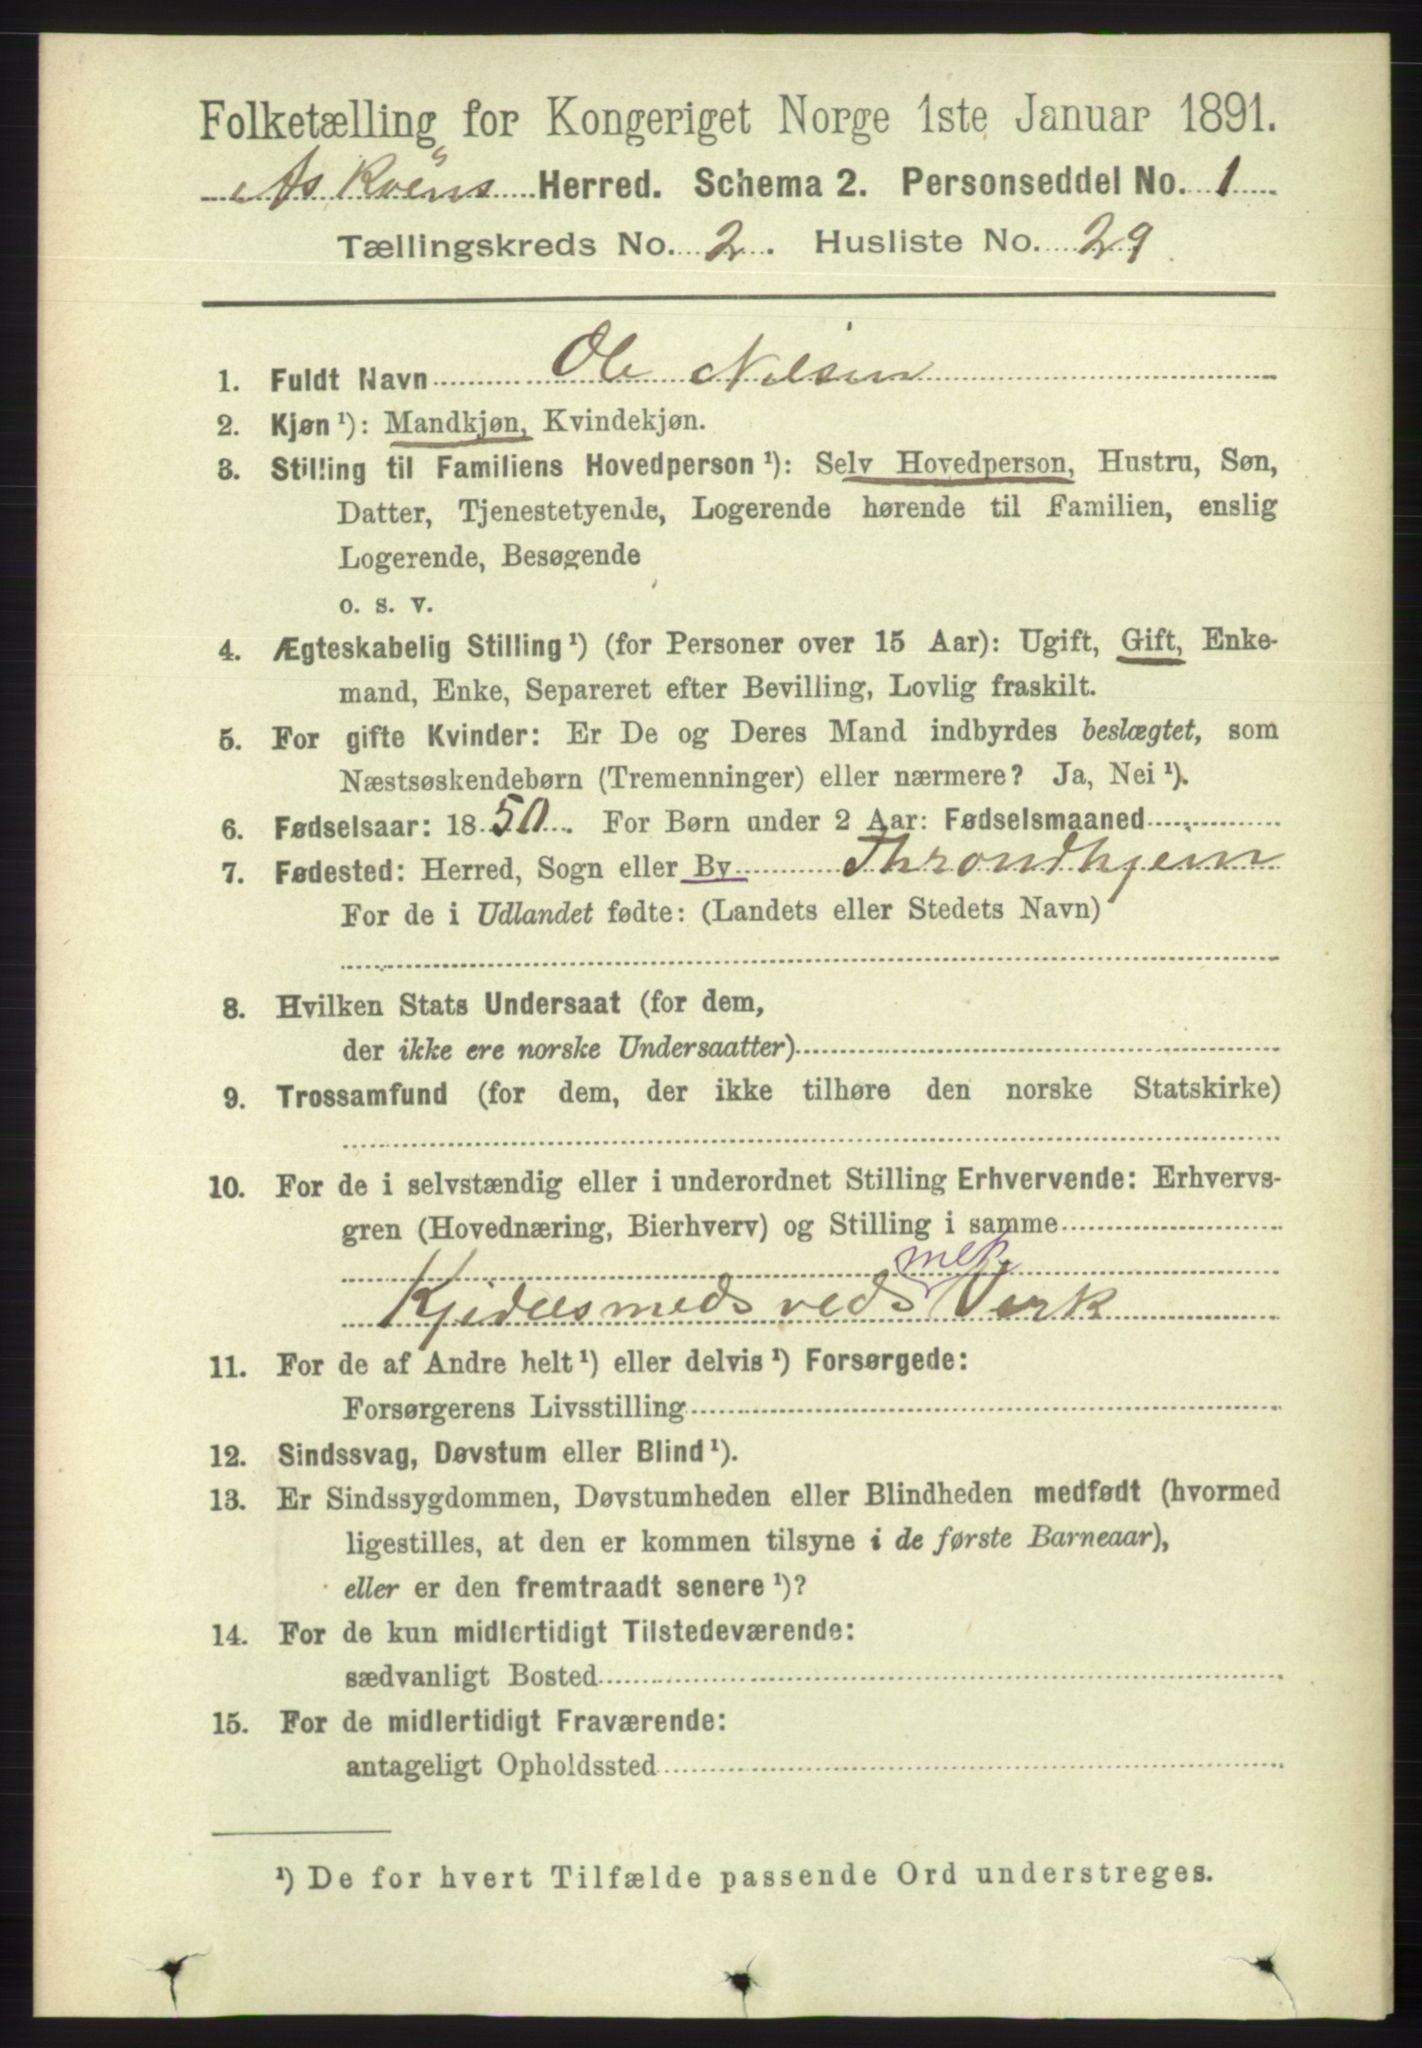 Folketælling for Kongeriget Norge 1ste Januar 1891.
Askøens Herred. Schema 2. Personseddel No. 1
Tællingskreds No. 2. Husliste No. 29
1. Fuldt Navn Ole Nilsen
2. Kjøn ¹): Mandkjøn, Kvindekjøn.
3. Stilling til Familiens Hovedperson ¹): Selv Hovedperson, Hustru, Søn,
Datter, Tjenestetyende, Logerende hørende til Familien, enslig
Logerende, Besøgende
o. s. v.
4. Ægteskabelig Stilling ¹) (for Personer over 15 Aar): Ugift, Gift, Enke-
mand, Enke, Separeret efter Bevilling, Lovlig fraskilt.
5. For gifte Kvinder: Er De og Deres Mand indbyrdes beslægtet, som
Næstsøskendebørn (Tremenninger) eller nærmere? Ja, Nei ¹).
6. Fødselsaar: 1850. For Børn under 2 Aar: Fødselsmaaned
7. Fødested: Herred, Sogn eller By Throndhjem
For de i Udlandet fødte: (Landets eller Stedets Navn)
8. Hvilken Stats Undersaat (for dem,
der ikke ere norske Undersaatter)
9. Trossamfund (for dem, der ikke tilhøre den norske Statskirke)
10. For de i selvstændig eller i underordnet Stilling Erhvervende: Erhvervs-
gren (Hovednæring, Bierhverv) og Stilling i samme
mek.
Kjedelsmed ved Verk
11. For de af Andre helt ¹) eller delvis ¹) Forsørgede:
Forsørgerens Livsstilling
12. Sindssvag, Døvstum eller Blind ¹).
13. Er Sindssygdommen, Døvstumheden eller Blindheden medfødt (hvormed
ligestilles, at den er kommen tilsyne i de første Barneaar),
eller er den fremtraadt senere ¹)?
14. For de kun midlertidigt Tilstedeværende:
sædvanligt Bosted
15. For de midlertidigt Fraværende:
antageligt Opholdssted
¹) De for hvert Tilfælde passende Ord understreges.